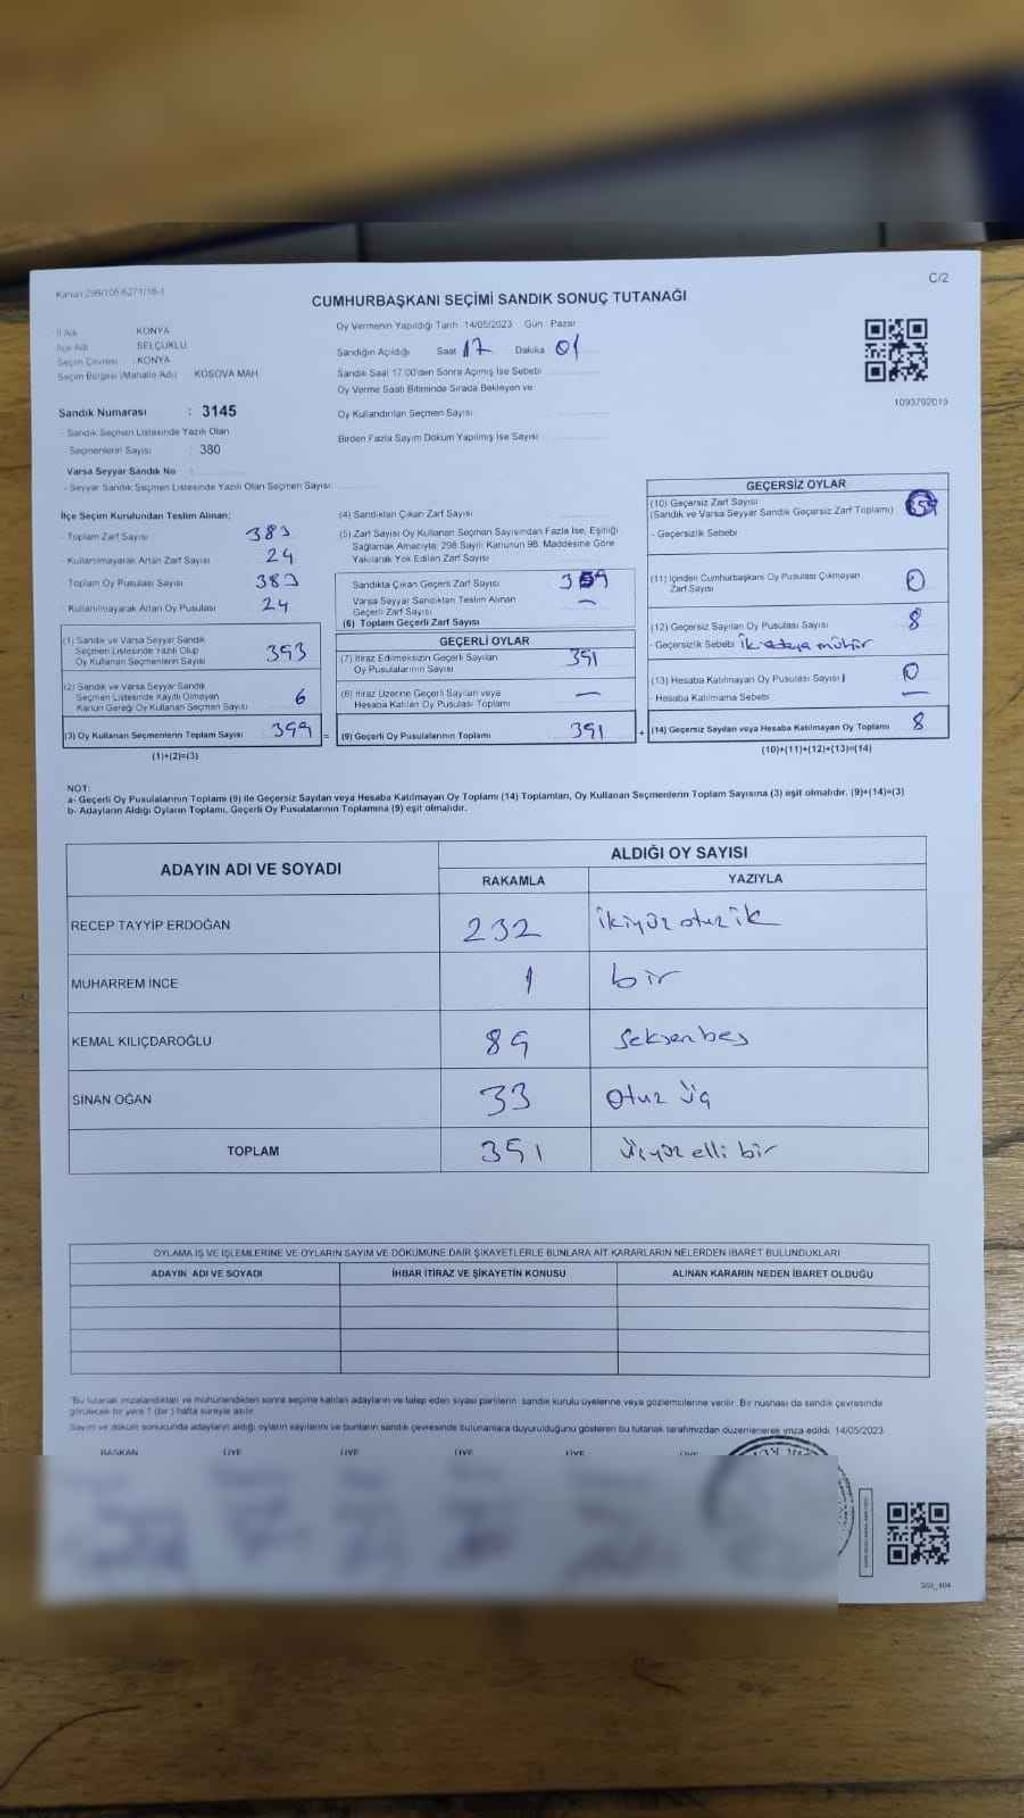 Kanun 298/105-6271/18-1
C/2
CUMHURBAŞKANI SEÇİMİ SANDIK SONUÇ TUTANAĞI
İl Adı KONYA
İlçe Adı SELÇUKLU
Seçim Çevresi : KONYA
Seçim Bölgesi (Mahalle Adı) KOSOVA MAH.
Oy Vermenin Yapıldığı Tarih : 14/05/2023 Gün : Pazar
Sandığın Açıldığı Saat 17 Dakika 01
Sandık Saat 17.00'den Sonra Açılmış İse Sebebi
Oy Verme Saati Bitiminde Sırada Bekleyen ve
Oy Kullandırılan Seçmen Sayısı
Birden Fazla Sayım Döküm Yapılmış İse Sayısı
1093792019
Sandık Numarası : 3145
- Sandık Seçmen Listesinde Yazılı Olan
Seçmenlerin Sayısı : 380
Varsa Seyyar Sandık No
- Seyyar Sandık Seçmen Listesinde Yazılı Olan Seçmen Sayısı
İlçe Seçim Kurulundan Teslim Alınan;
- Toplam Zarf Sayısı 383
- Kullanılmayarak Artan Zarf Sayısı 24
Toplam Oy Pusulası Sayısı 383
- Kullanılmayarak Artan Oy Pusulası 24
(1) Sandık ve Varsa Seyyar Sandık
Seçmen Listesinde Yazılı Olup
Oy Kullanan Seçmenlerin Sayısı 353
(2) Sandık ve Varsa Seyyar Sandık
Seçmen Listesinde Kayıtlı Olmayan
Kanun Gereği Oy Kullanan Seçmen Sayısı 6
(3) Oy Kullanan Seçmenlerin Toplam Sayısı 359 =
(1)+(2)=(3)
(4) Sandıktan Çıkan Zarf Sayısı
(5) Zarf Sayısı Oy Kullanan Seçmen Sayısından Fazla İse, Eşitliği
Sağlamak Amacıyla, 298 Sayılı Kanunun 98. Maddesine Göre
Yakılarak Yok Edilen Zarf Sayısı
Sandıkta Çıkan Geçerli Zarf Sayısı 359
Varsa Seyyar Sandıktan Teslim Alınan
Geçerli Zarf Sayısı —
(6) Toplam Geçerli Zarf Sayısı
GEÇERLİ OYLAR
(7) İtiraz Edilmeksizin Geçerli Sayılan
Oy Pusulalarının Sayısı 351
(8) İtiraz Üzerine Geçerli Sayılan veya
Hesaba Katılan Oy Pusulası Toplamı —
(9) Geçerli Oy Pusulalarının Toplamı 351 +
GEÇERSİZ OYLAR
(10) Geçersiz Zarf Sayısı
(Sandık ve Varsa Seyyar Sandık Geçersiz Zarf Toplamı)
- Geçersizlik Sebebi
(11) İçinden Cumhurbaşkanı Oy Pusulası Çıkmayan
Zarf Sayısı 0
(12) Geçersiz Sayılan Oy Pusulası Sayısı 8
- Geçersizlik Sebebi iki adaya mühür
(13) Hesaba Katılmayan Oy Pusulası Sayısı 0
- Hesaba Katılmama Sebebi —
(14) Geçersiz Sayılan veya Hesaba Katılmayan Oy Toplamı 8
(10)+(11)+(12)+(13)=(14)
NOT:
a- Geçerli Oy Pusulalarının Toplamı (9) ile Geçersiz Sayılan veya Hesaba Katılmayan Oy Toplamı (14) Toplamları, Oy Kullanan Seçmenlerin Toplam Sayısına (3) eşit olmalıdır. (9)+(14)=(3)
b- Adayların Aldığı Oyların Toplamı, Geçerli Oy Pusulalarının Toplamına (9) eşit olmalıdır.
ADAYIN ADI VE SOYADI
ALDIĞI OY SAYISI
RAKAMLA YAZIYLA
RECEP TAYYİP ERDOĞAN 232 ikiyüz otuz ik
MUHARREM İNCE 1 bir
KEMAL KILIÇDAROĞLU 85 Seksen beş
SİNAN OĞAN 33 Otuz üç
TOPLAM 351 Üçyüz elli bir
OYLAMA İŞ VE İŞLEMLERİNE VE OYLARIN SAYIM VE DÖKÜMÜNE DAİR ŞİKAYETLERLE BUNLARA AİT KARARLARIN NELERDEN İBARET BULUNDUKLARI
ADAYIN ADI VE SOYADI İHBAR İTİRAZ VE ŞİKAYETİN KONUSU ALINAN KARARIN NEDEN İBARET OLDUĞU
"Bu tutanak imzalandıktan ve mühürlendikten sonra seçime katılan adayların ve talep eden siyasi partilerin sandık kurulu üyelerine veya gözlemcilerine verilir. Bir nüshası da sandık çevresinde
görülecek bir yere 1 (bir) hafta süreyle asılır.
Sayım ve döküm sonucunda adayların aldığı oyların sayılarını ve bunların sandık çevresinde bulunanlara duyurulduğunu gösteren bu tutanak tarafımızdan düzenlenerek imza edildi. 14/05/2023
BAŞKAN ÜYE ÜYE ÜYE ÜYE ÜYE